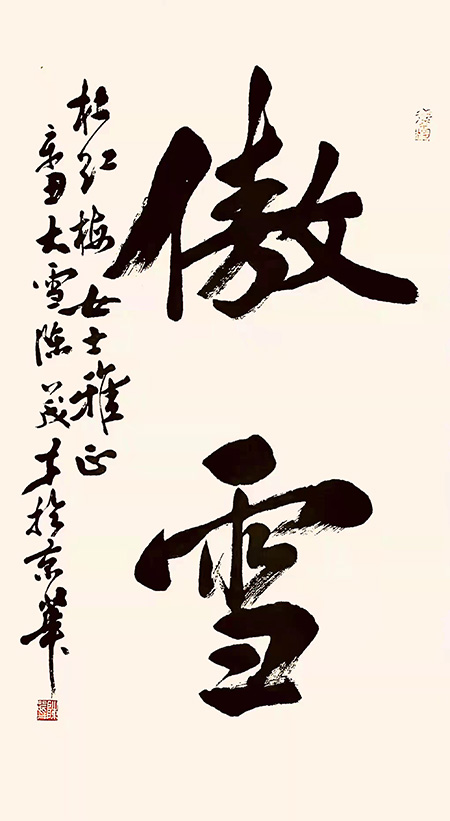 傲雪
杜红梅女士雅正
辛丑大雪陈茂才于京华